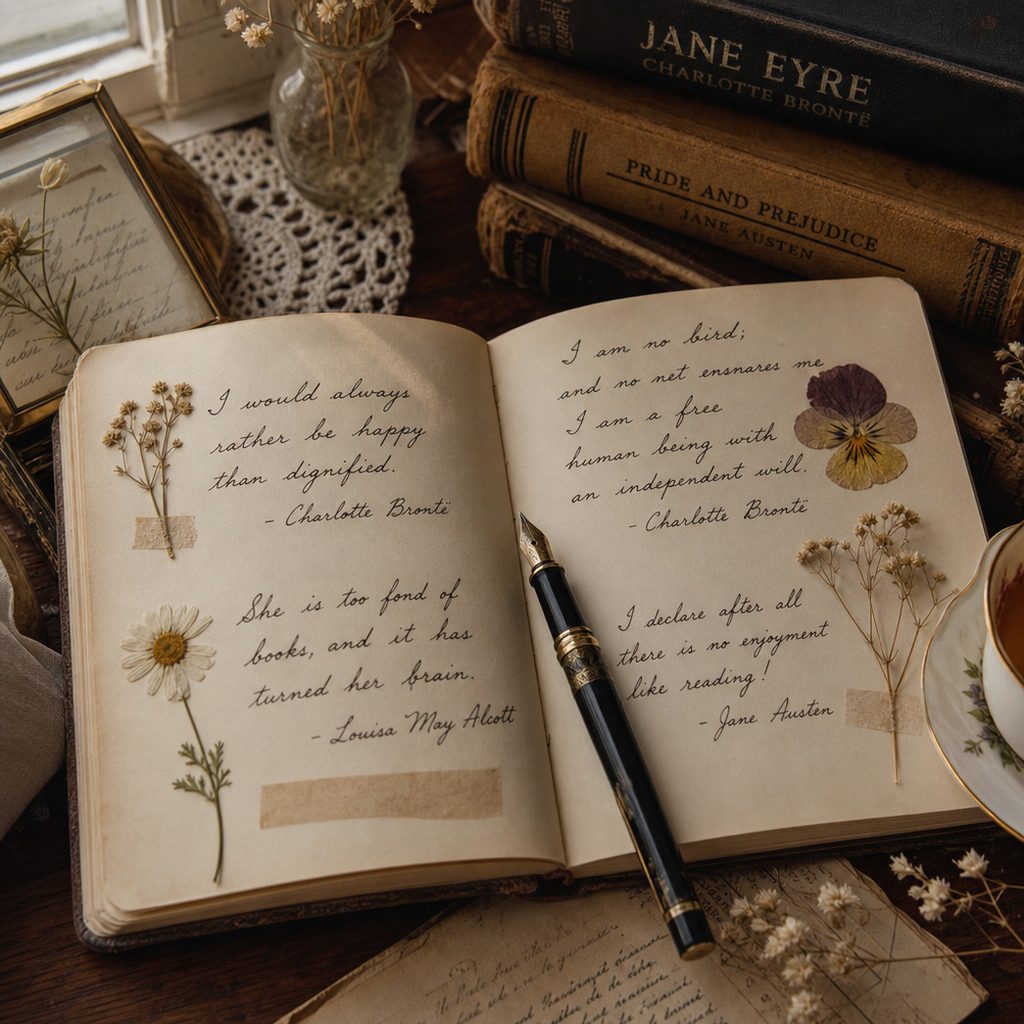 JANE EYRE
CHARLOTTE BRONTË
PRIDE AND PREJUDICE
JANE AUSTEN
I would always
rather be happy
than dignified.
- Charlotte Brontë
She is too fond of
books, and it has
turned her brain.
- Louisa May Alcott
I am no bird;
and no net ensnares me
I am a free
human being with
an independent will.
- Charlotte Brontë
I declare after all
there is no enjoyment
like reading!
- Jane Austen